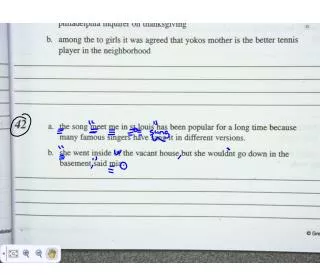 philadelphia inquirer on thanksgiving
b. among the to girls it was agreed that yokos mother is the better tennis
player in the neighborhood
42
a. the song meet me in st louis has been popular for a long time because
many famous singers have sung it in different versions.
b. she went inside of the vacant house, but she wouldn't go down in the
basement, said
© Gre